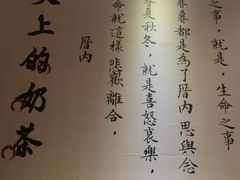 之事，就是，生命之事
春暮都是為了厝內 思與念
春夏秋冬，就是喜怒哀樂，
命就這樣 悲歡 離合，
厝內
上的奶茶